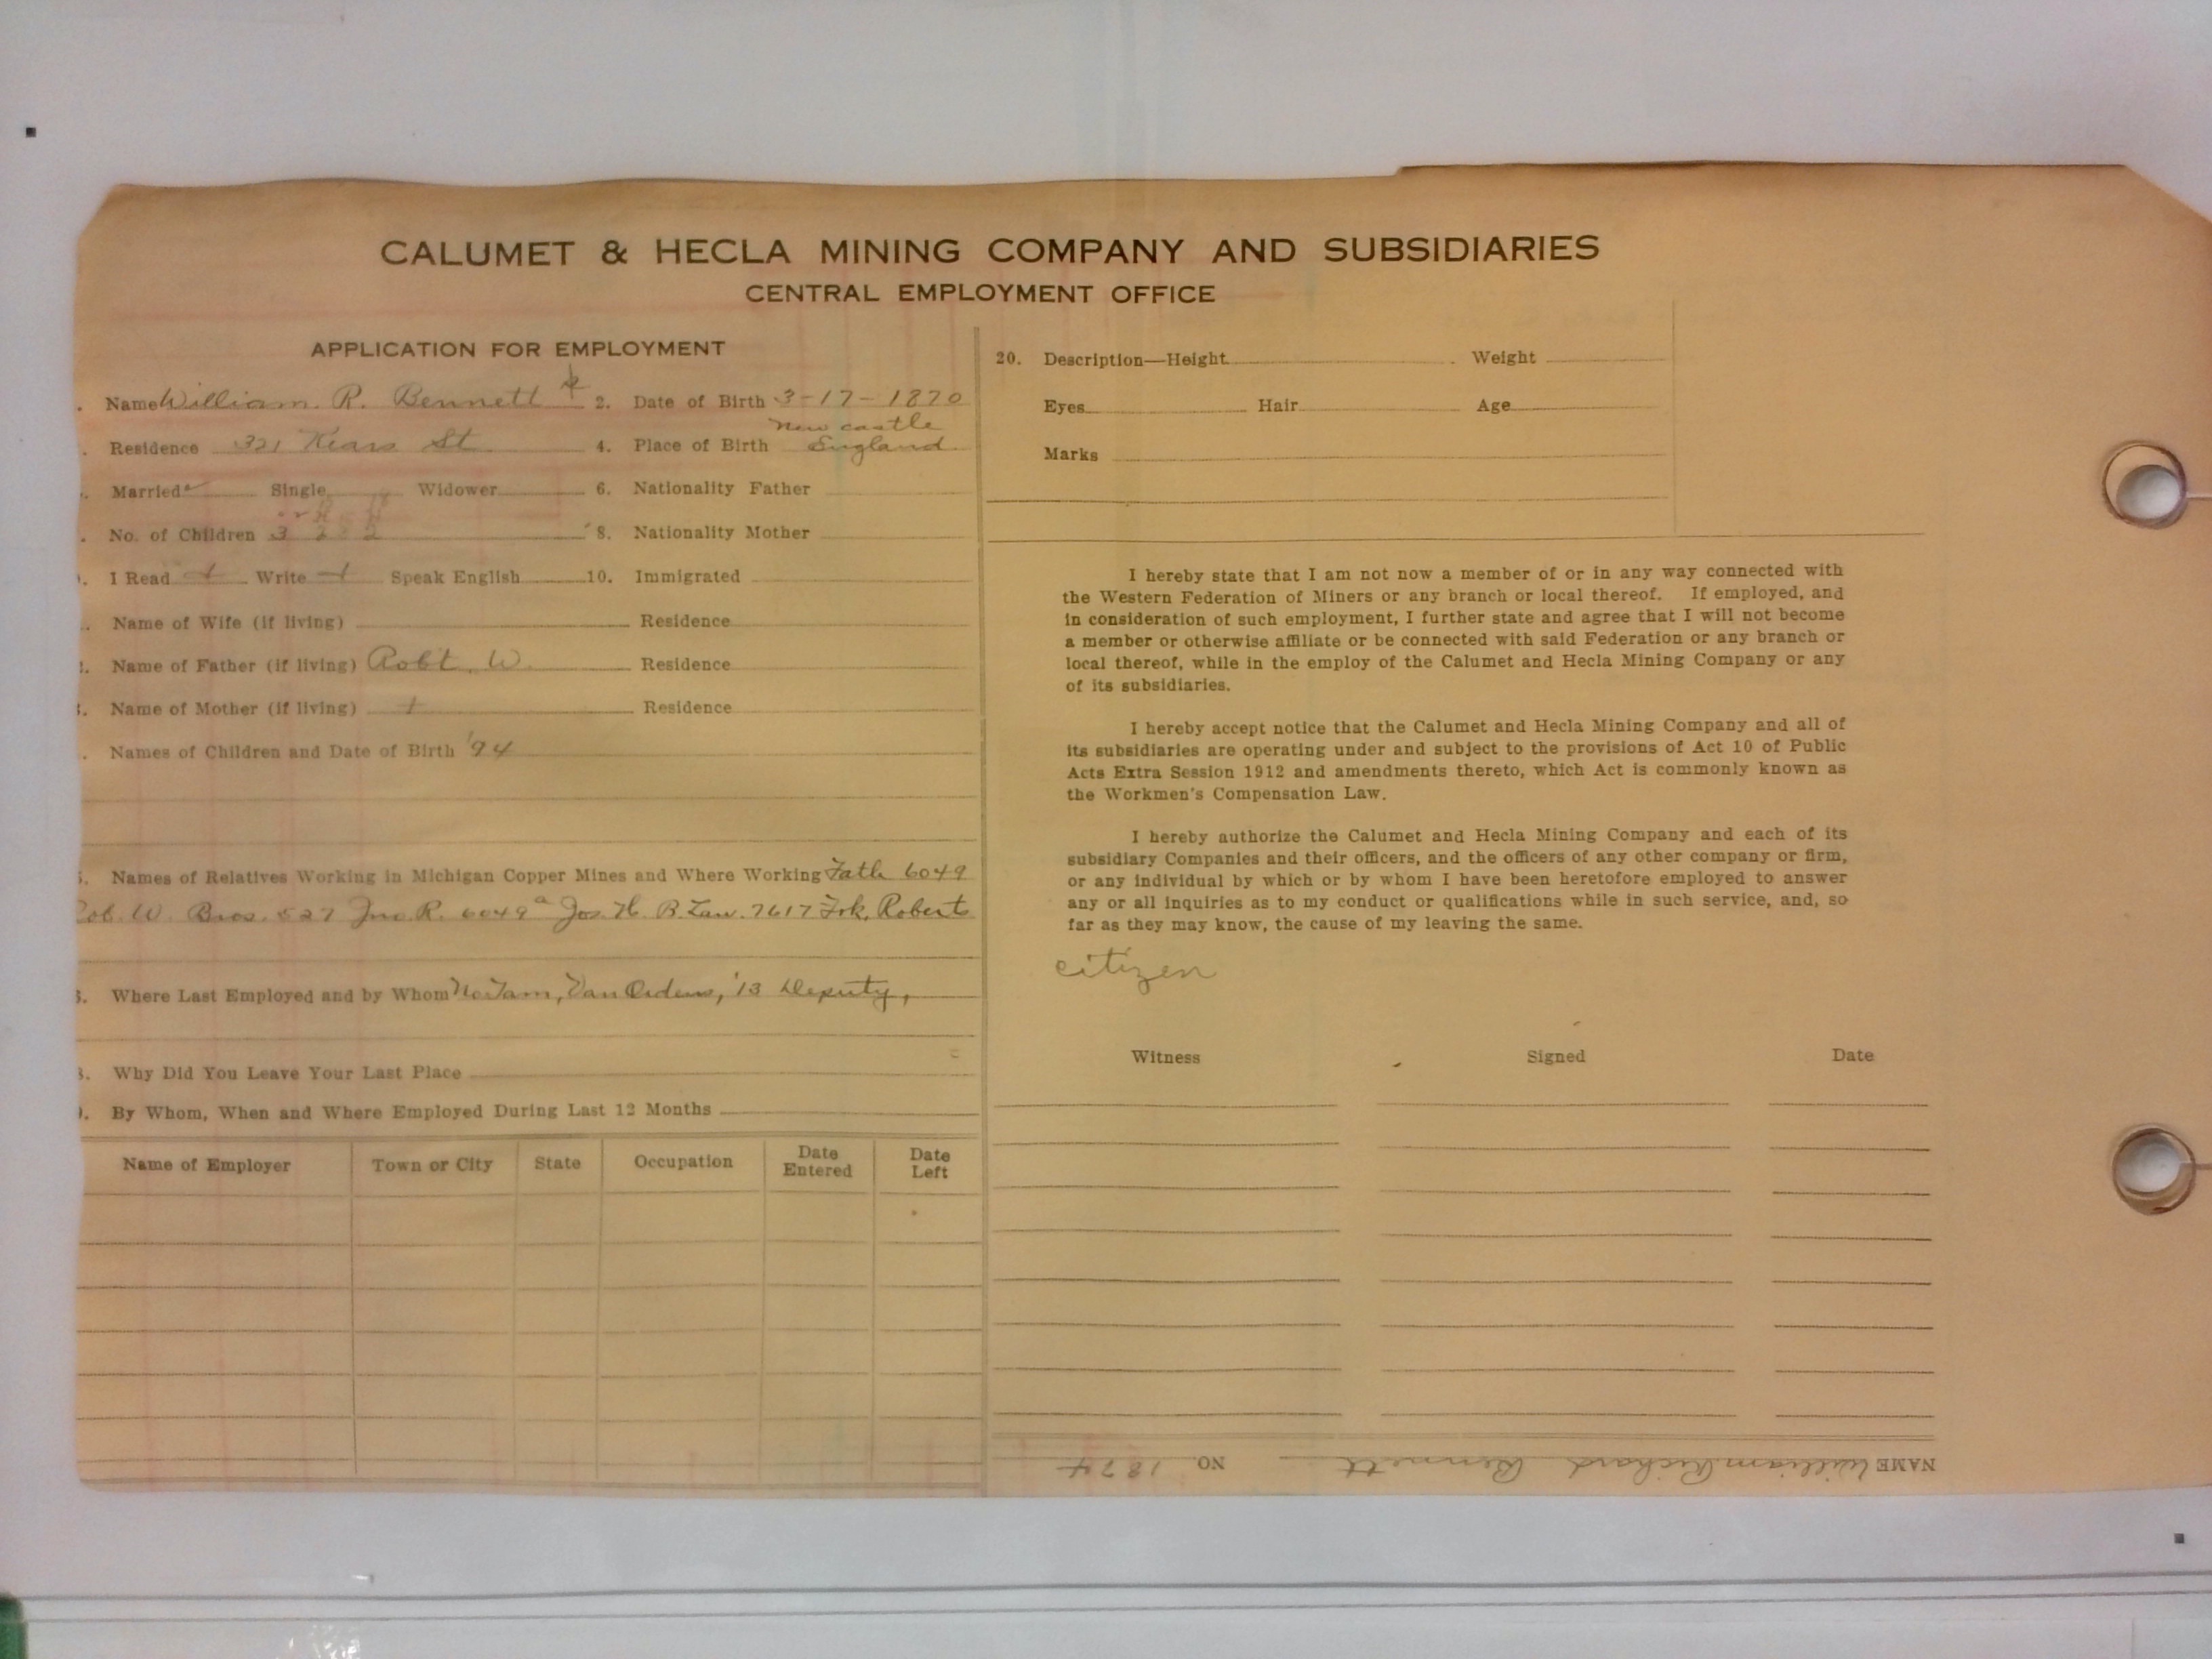 CALUMET & HECLA MINING COMPANY AND SUBSIDIARIES
CENTRAL EMPLOYMENT OFFICE
APPLICATION FOR EMPLOYMENT
. Name William. R. Bennett 2. Date of Birth 3-17-1870
. Residence 321 Kears St 4. Place of Birth New castle England
. Married Single Widower 6. Nationality Father
. No. of Children 3 8. Nationality Mother
. I Read Write Speak English 10. Immigrated
. Name of Wife (if living) Residence
. Name of Father (if living) Robt. W. Residence
. Name of Mother (if living) Residence
. Names of Children and Date of Birth '94
. Names of Relatives Working in Michigan Copper Mines and Where Working Fath 6049
Rob. W. Bros. 527 Jno. R. 6049a Jos. H. B. Law. 7617 Frk. Roberts
. Where Last Employed and by Whom Van Ordens, '13 Deputy,
. Why Did You Leave Your Last Place
. By Whom, When and Where Employed During Last 12 Months
Name of Employer Town or City State Occupation Date Entered Date Left
20. Description—Height Weight
Eyes Hair Age
Marks
I hereby state that I am not now a member of or in any way connected with
the Western Federation of Miners or any branch or local thereof. If employed, and
in consideration of such employment, I further state and agree that I will not become
a member or otherwise affiliate or be connected with said Federation or any branch or
local thereof, while in the employ of the Calumet and Hecla Mining Company or any
of its subsidiaries.
I hereby accept notice that the Calumet and Hecla Mining Company and all of
its subsidiaries are operating under and subject to the provisions of Act 10 of Public
Acts Extra Session 1912 and amendments thereto, which Act is commonly known as
the Workmen's Compensation Law.
I hereby authorize the Calumet and Hecla Mining Company and each of its
subsidiary Companies and their officers, and the officers of any other company or firm,
or any individual by which or by whom I have been heretofore employed to answer
any or all inquiries as to my conduct or qualifications while in such service, and, so
far as they may know, the cause of my leaving the same.
citizen
Witness Signed Date
NAME William Richard Bennett NO. 1874